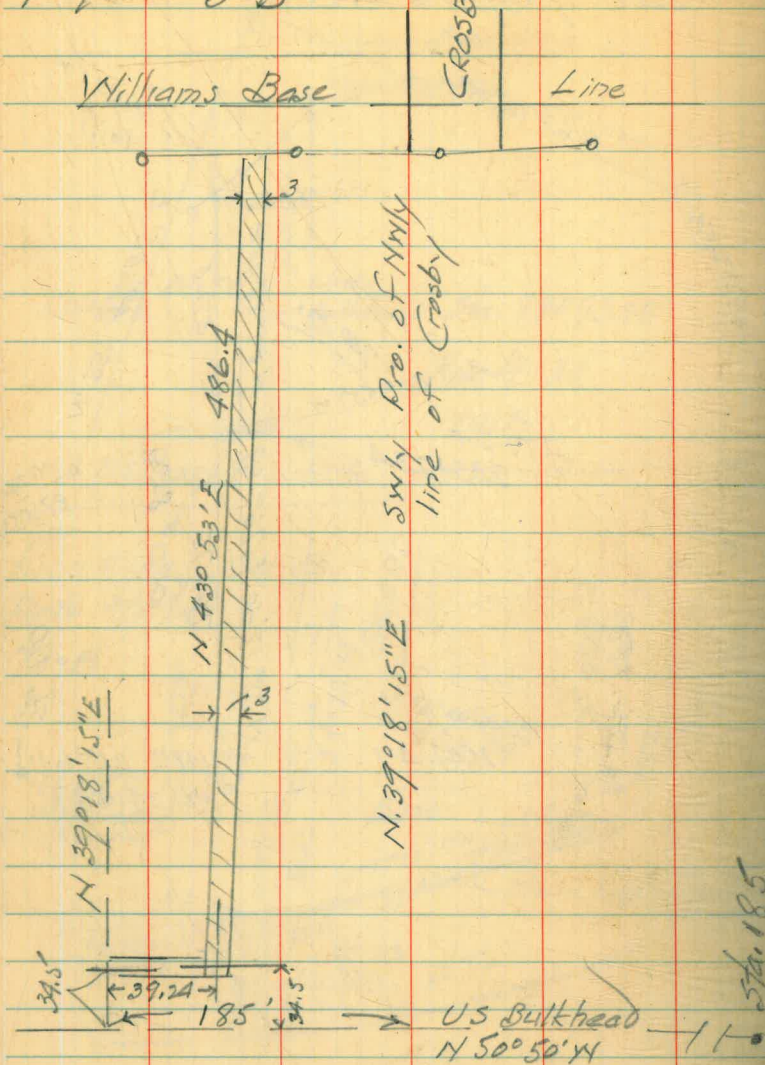 CROSB
Williams Base Line
3
486.4
N 43° 53' E
Swly Pro. of Nwly
line of Crosby
N. 39° 18' 15" E
3
N 39° 18' 15" E
34.5'
39.24
34.5'
185'
US Bulkhead
N 50° 50' W
Sta. 185